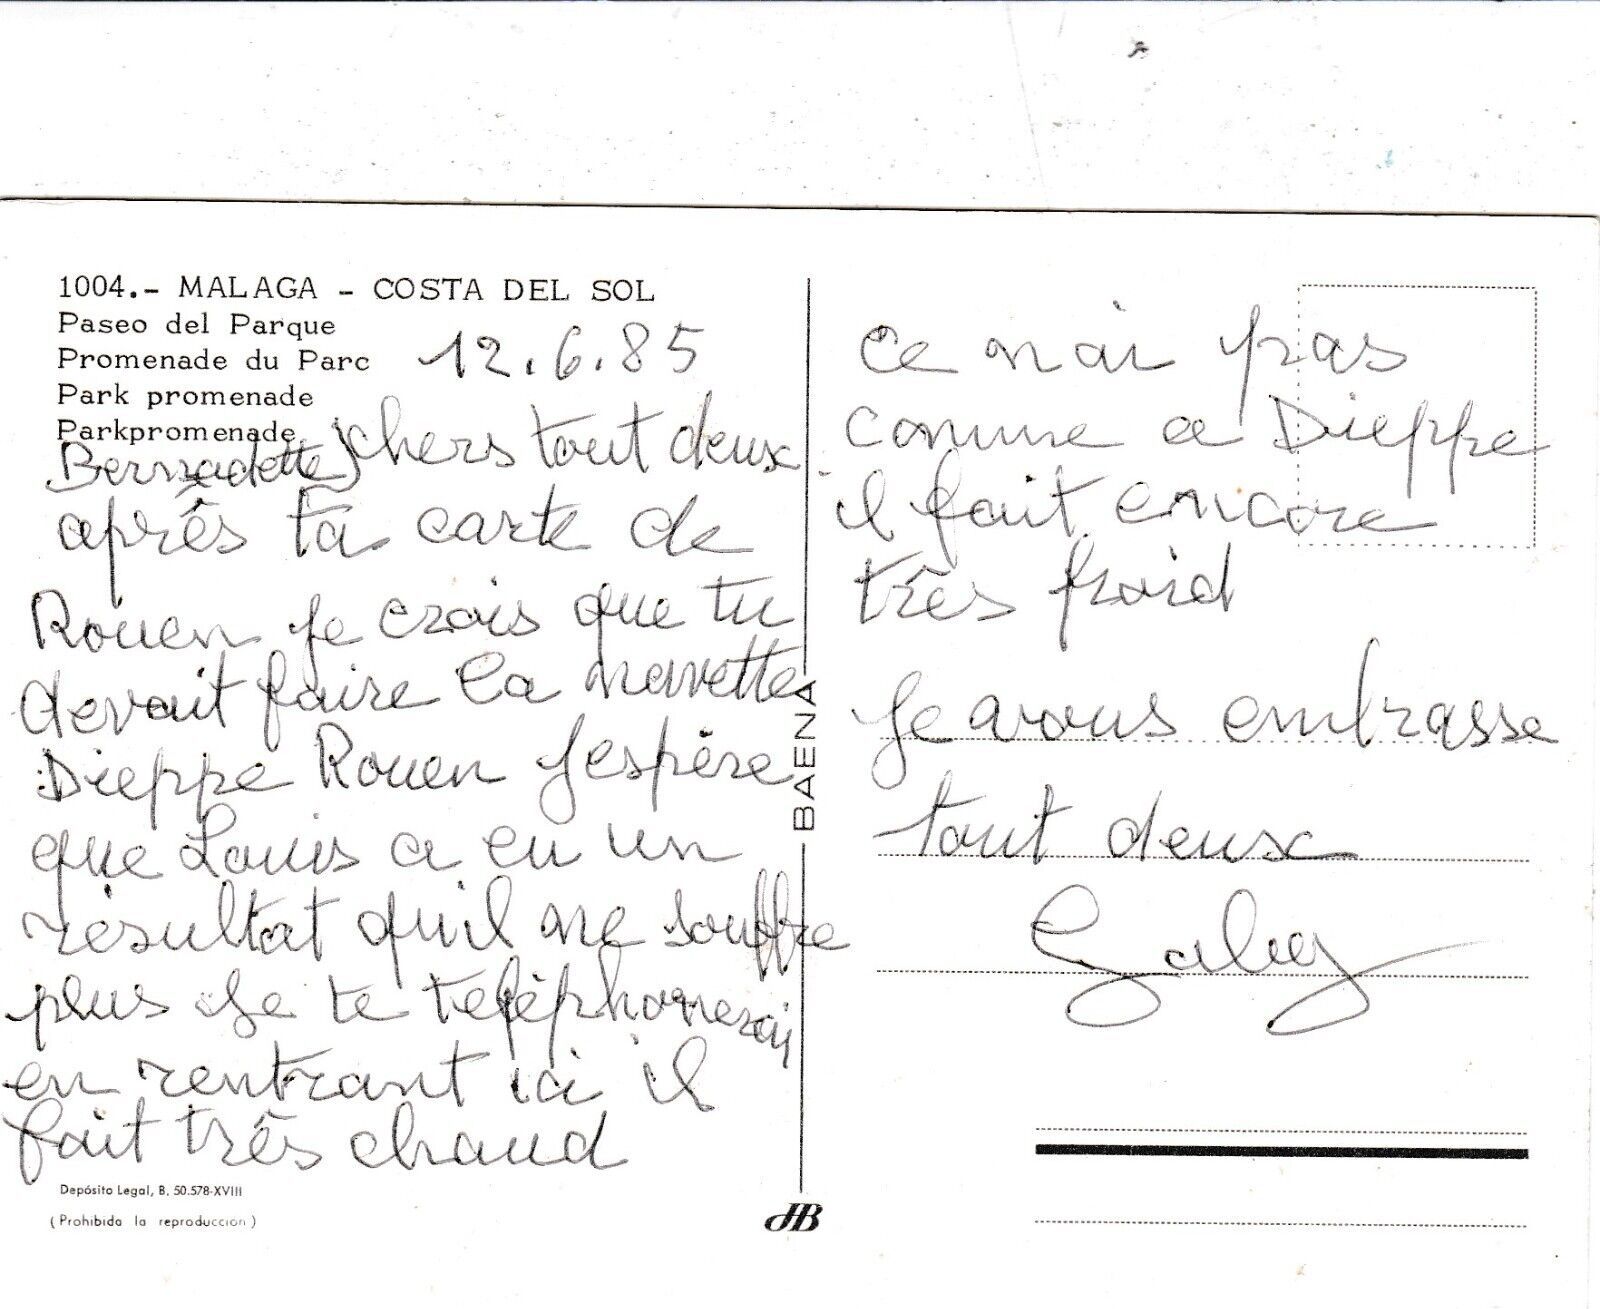 1004.- MALAGA - COSTA DEL SOL
Paseo del Parque
Promenade du Parc
Park promenade
Parkpromenade
12.6.85
Bernadette chers tout deux
après ta carte de
Rouen je crois que tu
devait faire la navette
Dieppe Rouen J'espère
que Louis a eu un
résultat qu'il ne souffre
plus Je te télèphonerai
en rentrant ici il
fait très chaud
ce n'ai pas
comme a Dieppe
il fait encore
très froid
Je vous embrasse
tout deux
Gaby
BAENA
Depósito Legal, B. 50.578-XVIII
(Prohibida la reproduccion)
JHB